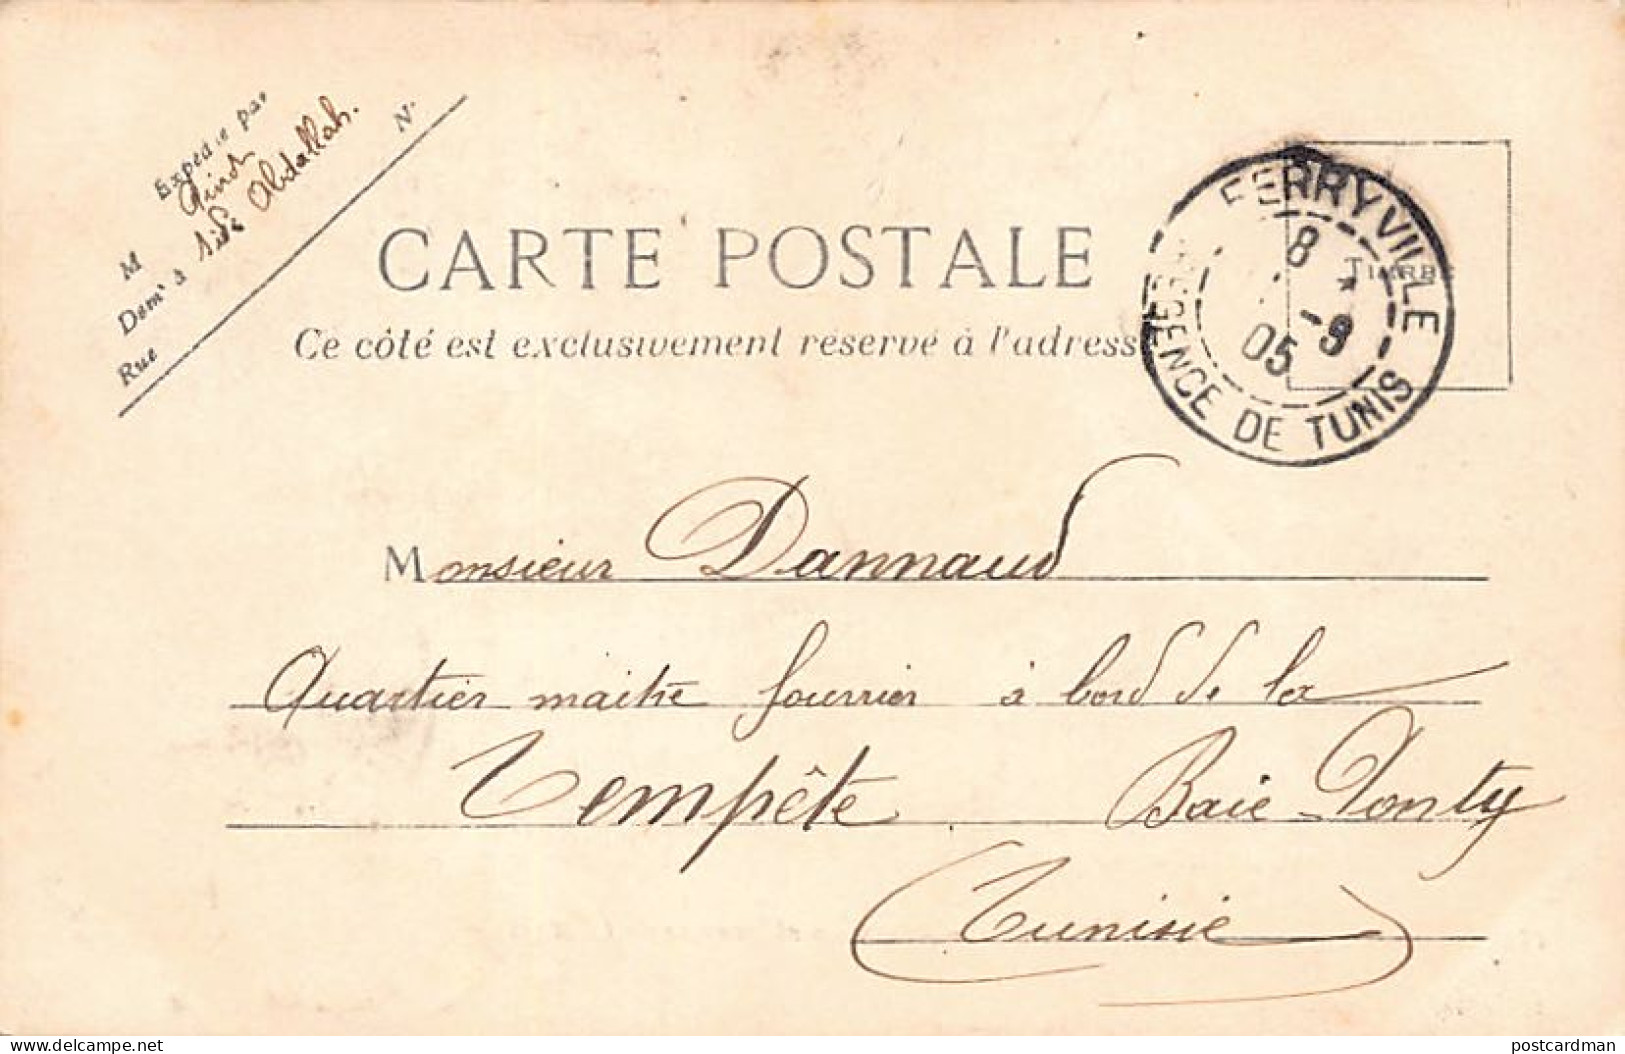 Expédié par
M
Sidi Abdallah.
Demt à N°
Rue
CARTE POSTALE
Ce côté est exclusivement réservé à l'adresse
TIMBRE
FERRYVILLE
8 *
-9
05
REGENCE DE TUNIS
Monsieur Dannaud
Quartier maitre fourrier à bord de la
Tempête Baie Ponty
Tunisie
delcampe.net
postcardman